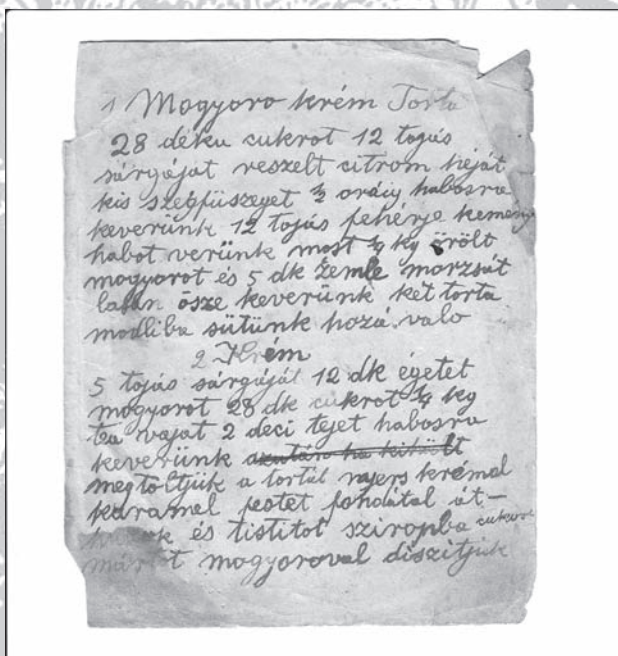 1 Mogyoro krém Torta
28 déka cukrot 12 tojás
sárgáját reszelt citrom héját
kis szegfüszeget ½ oráig habosra
keverünk 12 tojás fehérje kemeny
habot verünk most ¼ kg örölt
mogyorot és 5 dk zemle morzsát
lasan ösze keverünk két torta
modliba sütünk hozá való
2 Krém
5 tojás sárgáját 12 dk égetet
mogyorot 28 dk cukrot ¼ kg
tea vajat 2 deci tejet habosra
keverünk azután ha kihült
megtöltjük a tortát nyers krémel
karamel festet fondátal át-
huzuk és tistitot sziropba cukros
mártot mogyoroval diszitjük